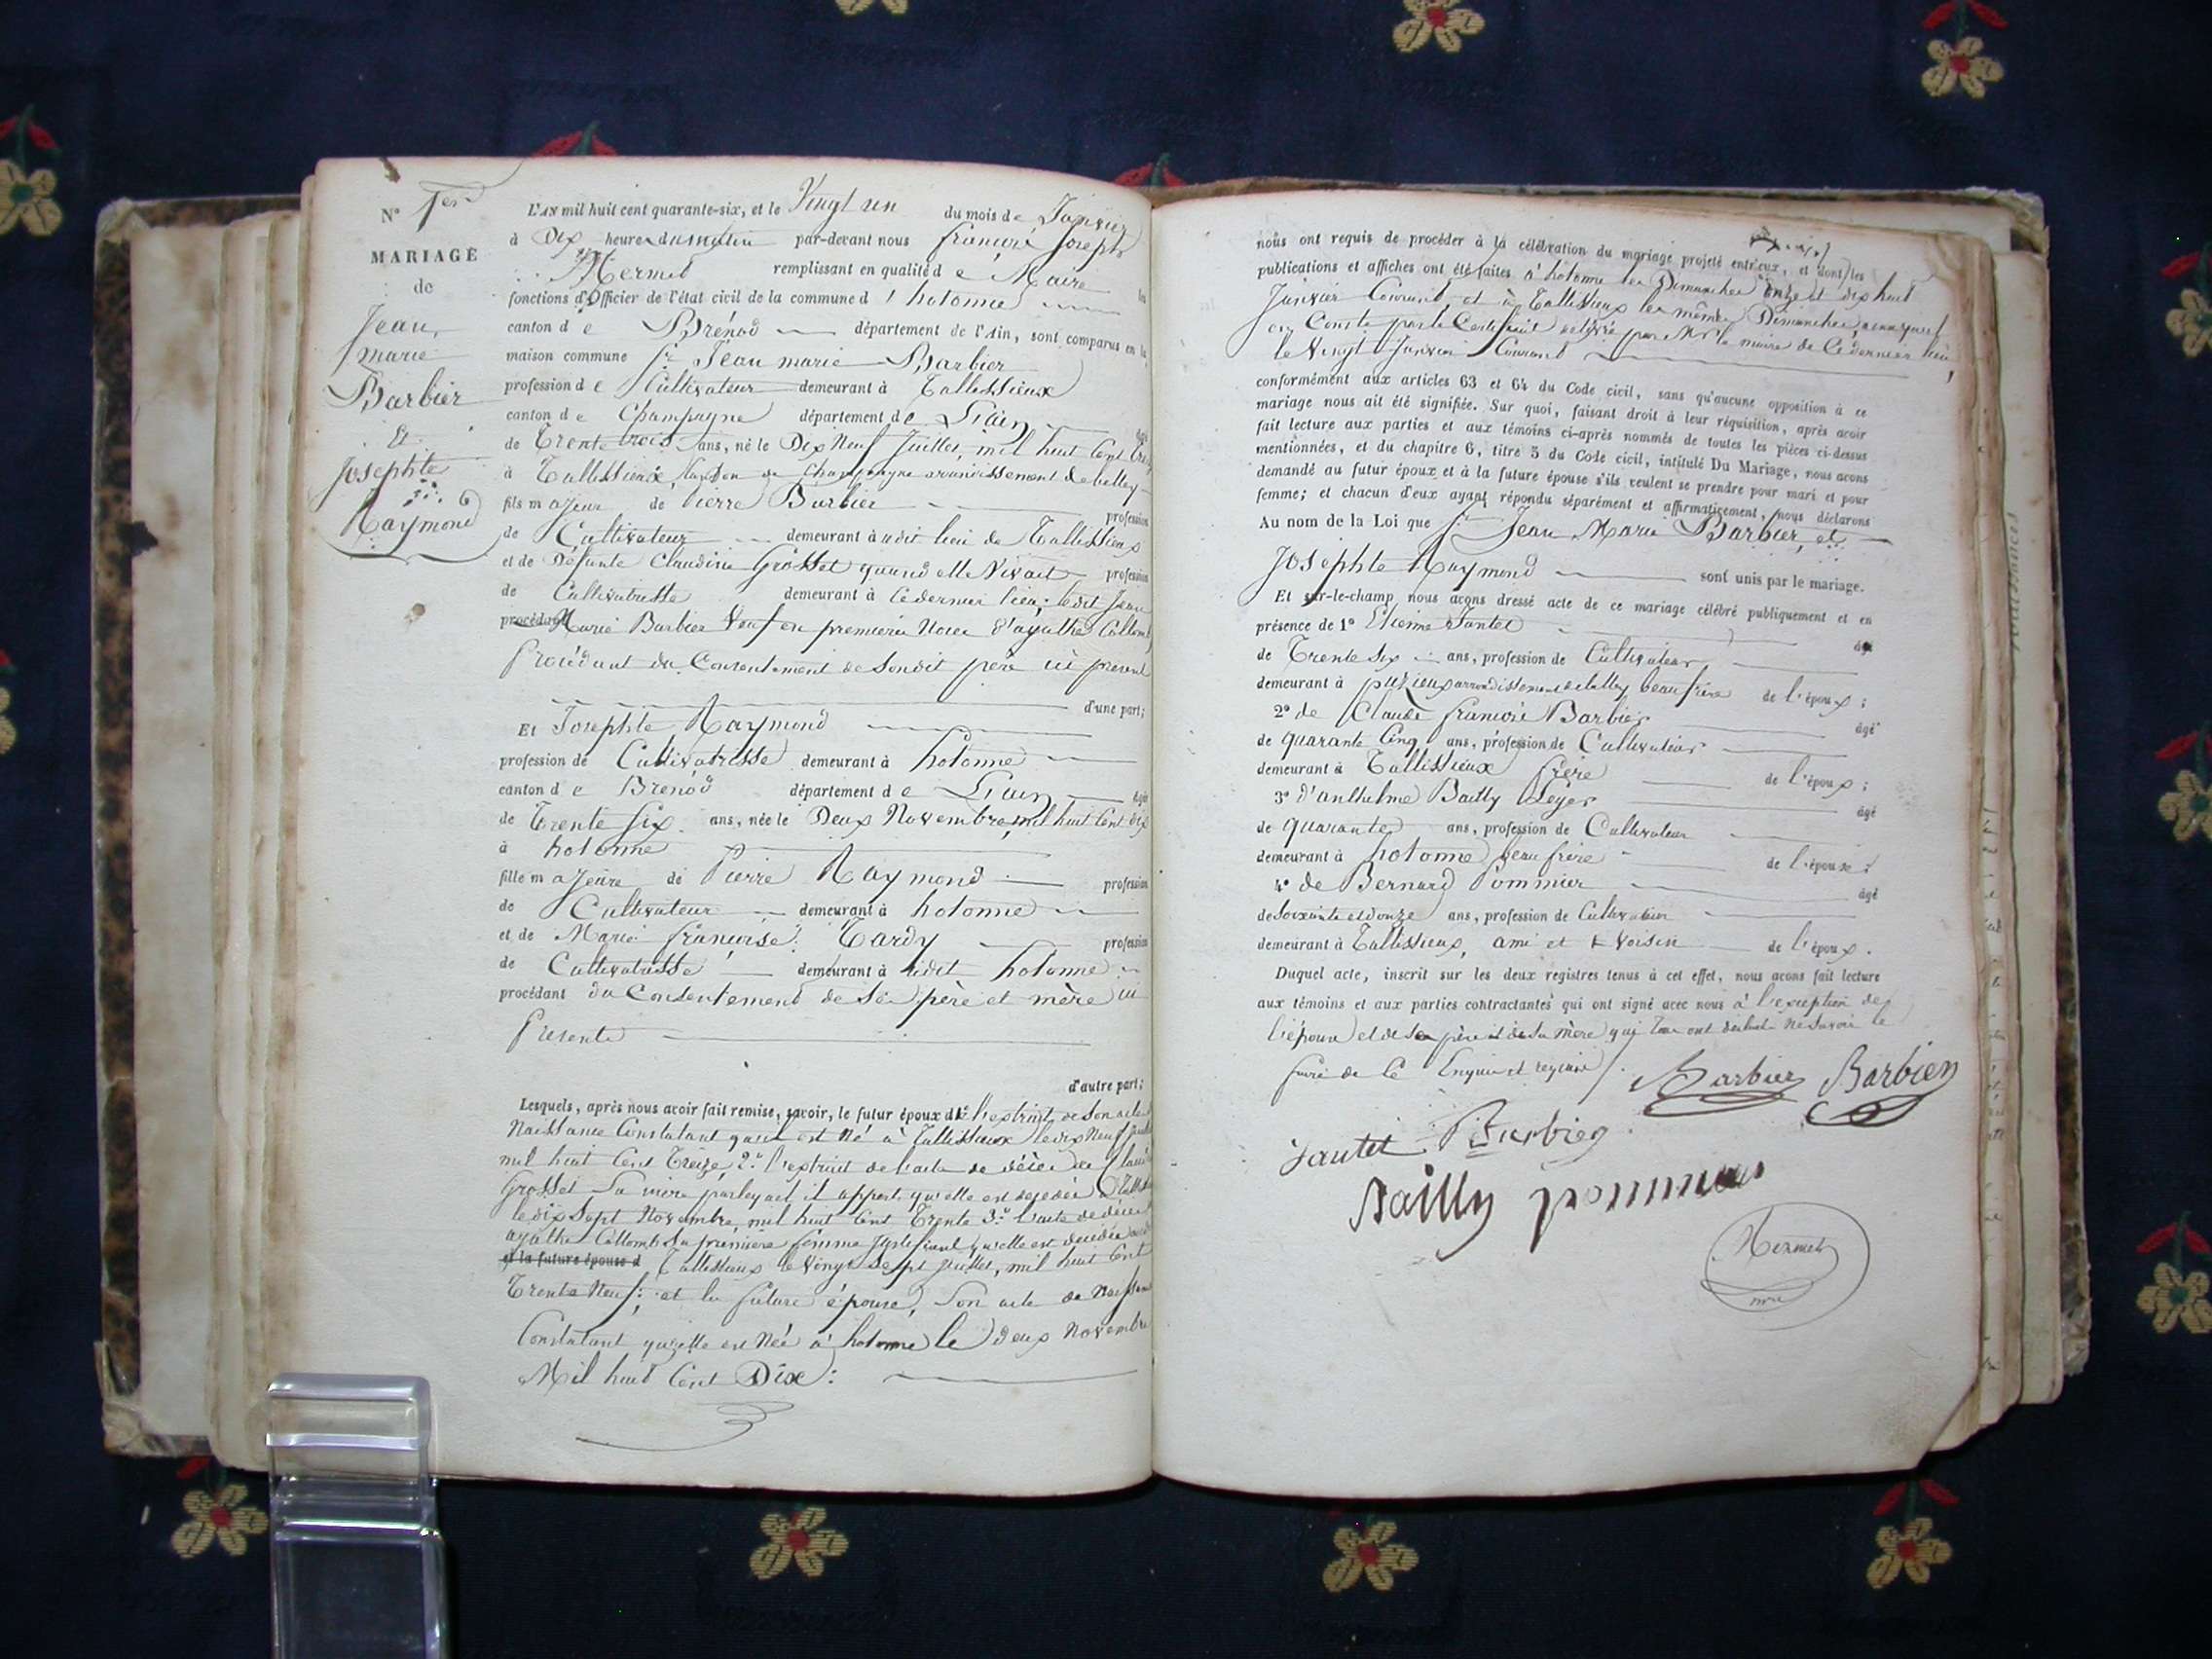 N° 1er
MARIAGE
de
Jean
marie
Barbier
Et
Josephte
Raymond
L'AN mil huit cent quarante-six, et le Vingt un du mois de Janvier
à Dix heures du matin par-devant nous françois Joseph
Mermet remplissant en qualité de Maire les
fonctions d'Officier de l'état civil de la commune d'hotonne
canton de Brénod département de l'Ain, sont comparus en la
maison commune Sr Jean marie Barbier
profession de Cultivateur demeurant à Tallissieux
canton de Champagne département de L'ain âgé
de Trente trois ans, né le Dix Neuf Juillet, mil huit Cent
à Tallissieux, Canton de Champagne arrondissement de belley
fils majeur de Pierre Barbier profession
de Cultivateur demeurant audit lieu de Tallissieux
et de Défunte Claudine Grosset quand elle Vivait profession
de Cultivatrisse demeurant à Cedernier lieu; ledit Jean
procédant Marie Barbier Veuf en premiere Noces d'agathe Collomb
Procédant du Consentement de Sondit père ici present
d'une part;
Et Josephte Raymond
profession de Cultivatrisse demeurant à hotonne
canton de Brénod département de L'ain âgée
de Trente six ans, née le Deux Novembre mil huit Cent dix
à hotonne
fille majeure de Pierre Raymond profession
de Cultivateur demeurant à hotonne
et de Marie françoise Tardy profession
de Cultivatrisse demeurant à udit hotonne
procédant du Consentement de Sés père et mère ici
Présents
d'autre part;
Lesquels, après nous avoir fait remise, savoir, le futur époux de 1° l'extrait de Son acte
Naissance Constatant qu'il est Né à Tallissieux le dix Neuf
mil huit Cent Treize 2° l'extrait de l'acte de décès de
Grosset Sa mère par lequel il appert qu'elle est décédée à
le dix Sept Novembre mil huit Cent Trente 3° l'acte de décès
agathe Collomb Sa première femme Justifiant qu'elle est décédée
et la future épouse d Tallissieux le Vingt Sept Juillet, mil huit Cent
Trente Neuf: et la future épouse, Son acte de Naissance
Constatant qu'elle est Née à hotonne le deux Novembre
Mil huit Cent Dix:
nous ont requis de procéder à la célébration du mariage projeté entr'eux, et dont les
publications et affiches ont été faites à hotonne les Dimanches onze et dix huit
Janvier Courant et à Tallissieux les mêmes Dimanches,
Conste par le Certificat délivré par Mr le maire de Cedernier lieu
le Vingt Janvier Courant
conformément aux articles 63 et 64 du Code civil, sans qu'aucune opposition à ce
mariage nous ait été signifiée. Sur quoi, faisant droit à leur réquisition, après avoir
fait lecture aux parties et aux témoins ci-après nommés de toutes les pièces ci-dessus
mentionnées, et du chapitre 6, titre 5 du Code civil, intitulé Du Mariage, nous avons
demandé au futur époux et à la future épouse s'ils veulent se prendre pour mari et pour
femme; et chacun d'eux ayant répondu séparément et affirmativement, nous déclarons
Au nom de la Loi que Sr Jean Marie Barbier, et
Josephte Raymond sont unis par le mariage.
Et sur-le-champ nous avons dressé acte de ce mariage célébré publiquement et en
présence de 1° Etienne Jantet âgé
de Trente Six ans, profession de Cultivateur
demeurant à puzieux arrondissement de belley beau frère de l'époux;
2° de Claude françois Barbier âgé
de quarante Cinq ans, profession de Cultivateur
demeurant à Tallissieux frère de l'époux;
3° d'anthelme Bailly Leger âgé
de quarante ans, profession de Cultivateur
demeurant à hotonne beau frère de l'épouse;
4° de Bernard Pommier âgé
de Soixante et douze ans, profession de Cultivateur
demeurant à Tallissieux, ami et Voisin de l'époux.
Duquel acte, inscrit sur les deux registres tenus à cet effet, nous avons fait lecture
aux témoins et aux parties contractantes qui ont signé avec nous à l'exception de
l'épouse et de Son père et de Sa mère qui Tous ont déclaré ne Savoir le
faire de Ce Enquis et requis
Barbier Barbier
Jantet P Barbier
Bailly pommier
Mermet
mre